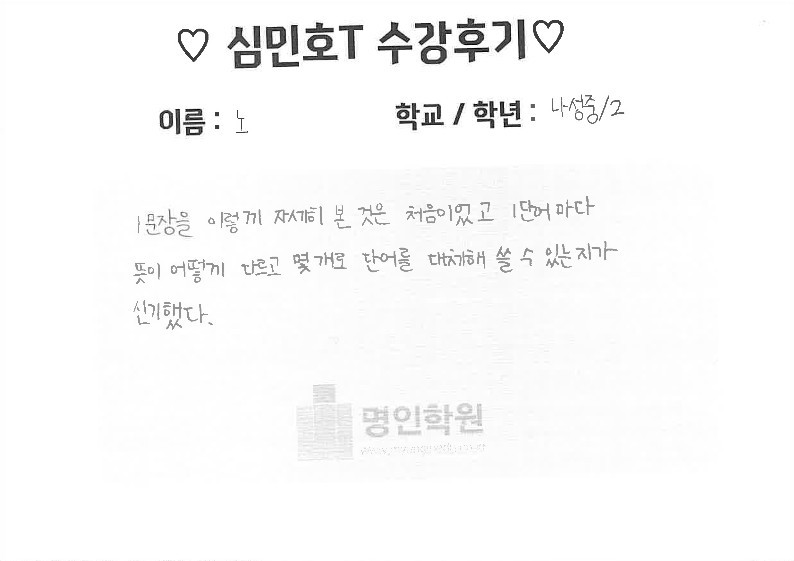 ♡ 심민호T 수강후기♡
이름 : 노
학교 / 학년 : 나성중/2
1문장을 이렇게 자세히 본 것은 처음이었고 1단어마다
뜻이 어떻게 다르고 몇개로 단어를 대체해 쓸 수 있는지가
신기했다.
명인학원